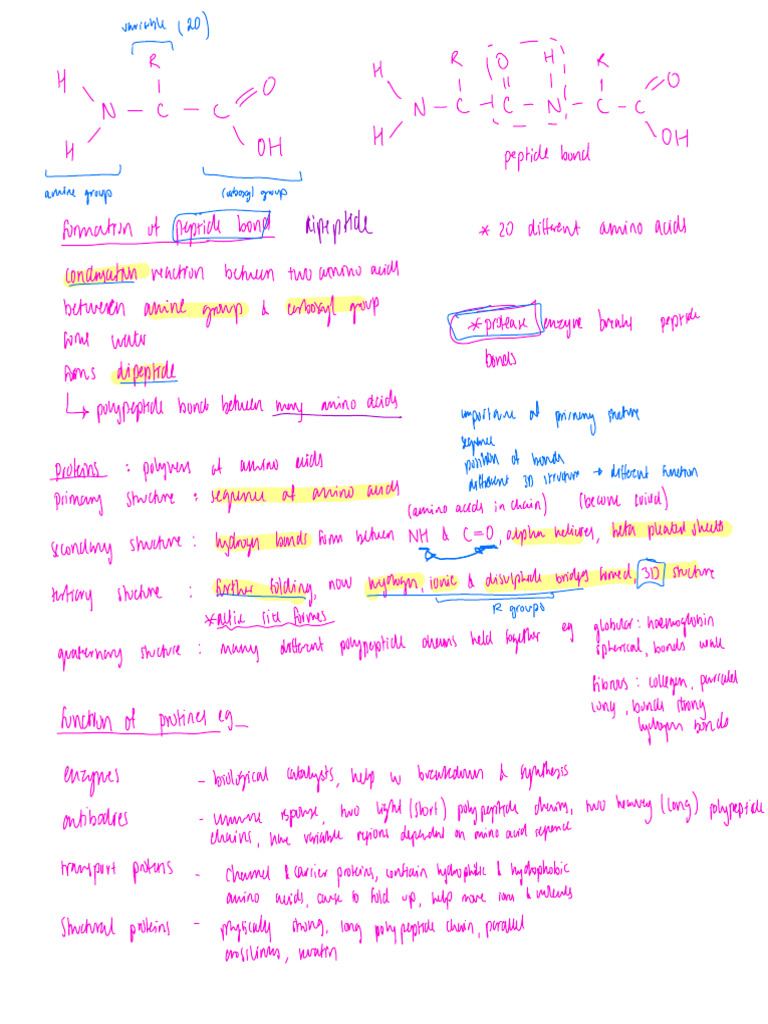 variable (20)
R
H
N - C - C
O
H
OH
amine group
carboxyl group
R O H R
H
N - C - C - N - C - C
O
H
OH
peptide bond
formation of peptide bond dipeptide
* 20 different amino acids
condensation reaction between two amino acids
between amine group & carboxyl group
forms water
forms dipeptide
↳ polypeptide bonds between many amino acids
* protease enzyme breaks peptide
bonds
importance of primary structure
sequence
position of bonds
different 3D structure → different function
proteins : polymers of amino acids
primary structure : sequence of amino acids
(amino acids in chain) (become coiled)
secondary structure : hydrogen bonds form between NH & C=O, alpha helices, beta pleated sheets
tertiary structure : further folding, now hydrogen, ionic & disulphide bridges formed, 3D structure
R groups
* active site formes
quaternary structure : many different polypeptide chains held together eg
globular : haemoglobin
spherical, bonds weak
fibrous : collagen, parallel
long, bonds strong
hydrogen bonds
function of protines eg
enzymes - biological catalysts, help w breakdown & synthesis
antibodies - immune response, two light (short) polypeptide chains, two heavey (long) polypeptide
chains, have variable regions dependent on amino acid sequence
transport proteins - channel & carrier proteins, contain hydrophilic & hydrophobic
amino acids, cause to fold up, help move ions & molecules
structural proteins - physically strong, long polypeptide chain, parallel
crosslinks, keratin